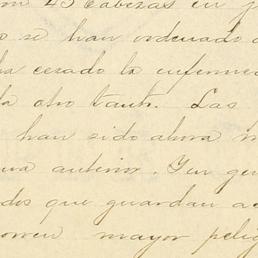 45 Cabezas en p
o se han ordenado a
ha cesado la enferme
da otro tanto. Las
han sido ahora m
ura anterior. Gen ge
dos que guardan a
corren mayor pelig